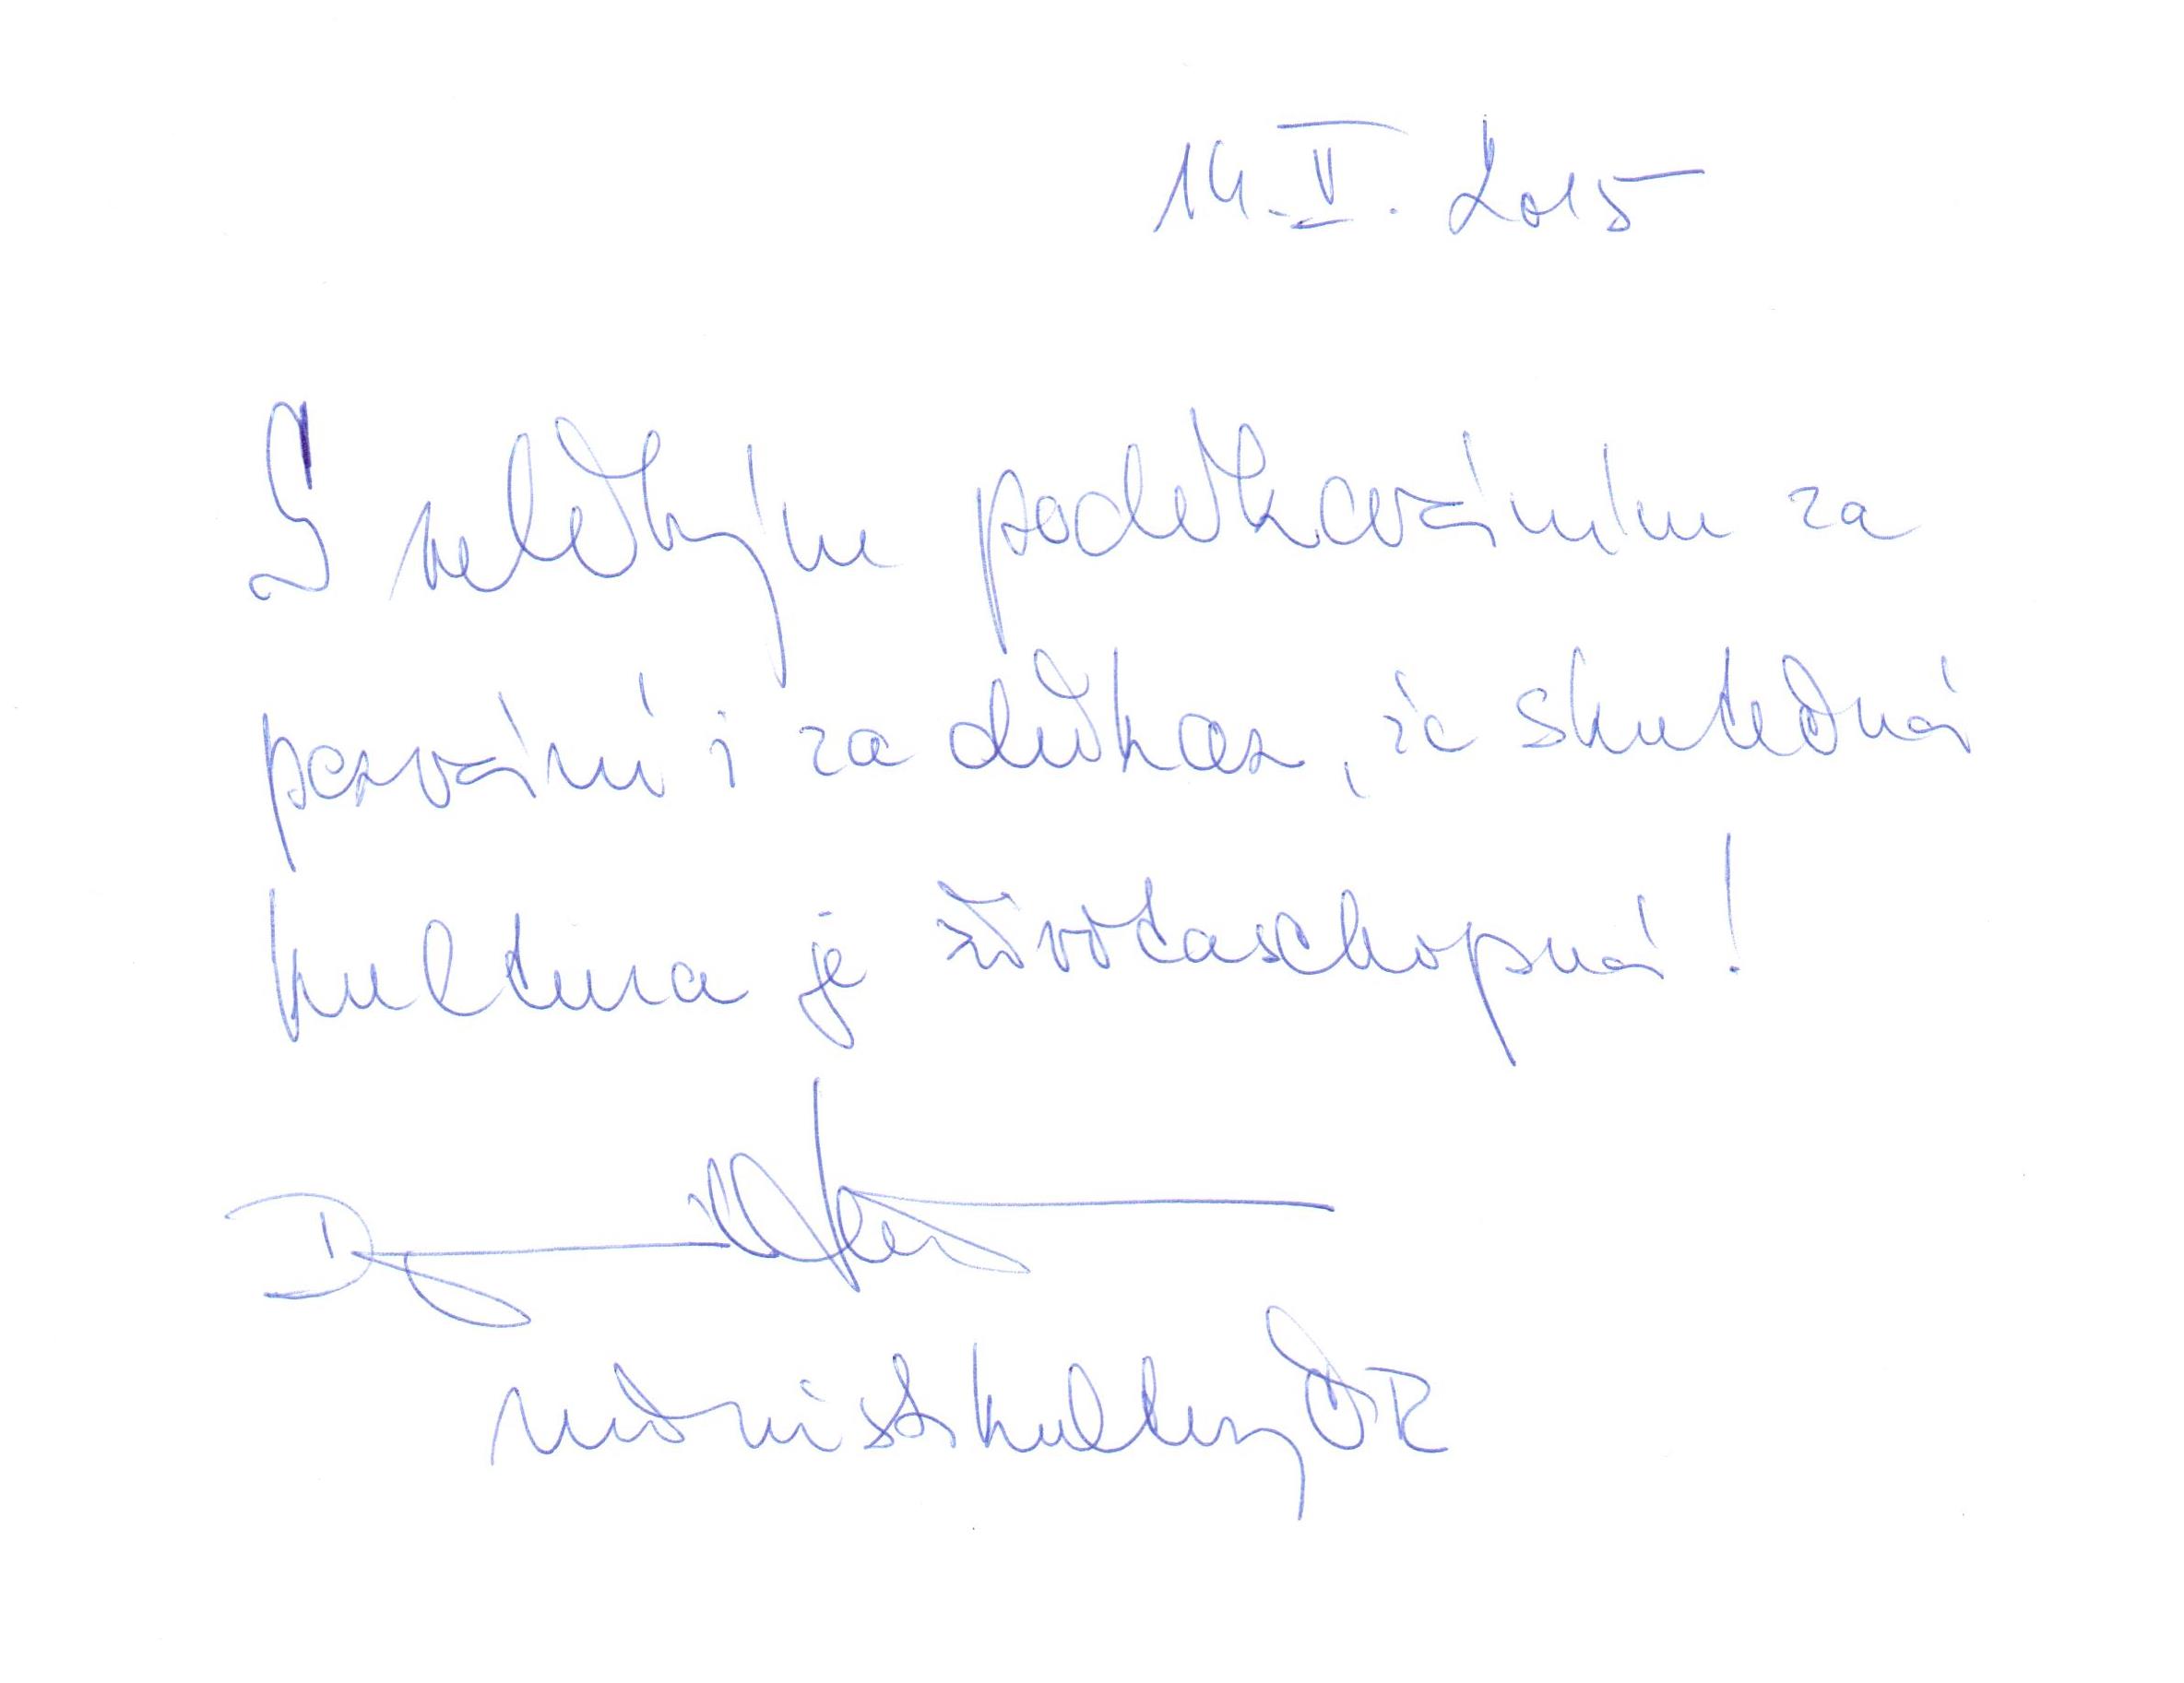 14. II. 2015
S velikým poděkováním za
pozvání i za důkaz, že skutečná
kultura je životaschopná!
ministr kultury ČR